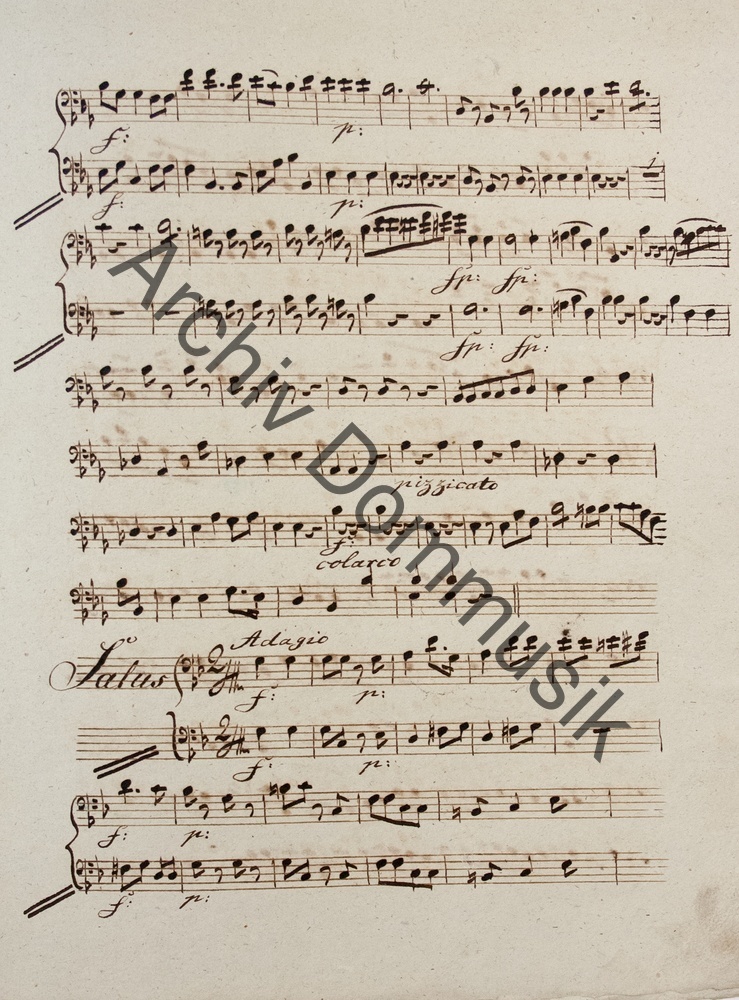 f: p:
f: p:
fp: fp:
fp: fp:
pizzicato
f:
colarco
Adagio
Salus
f: p:
f: p:
f: p:
f: p:
Archiv Dommusik